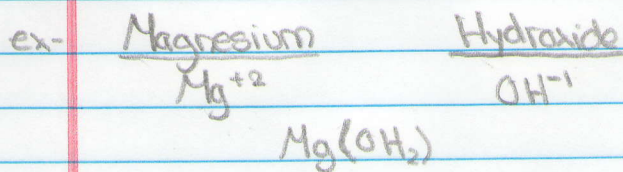 ex- Magnesium Hydroxide
Mg⁺² OH⁻¹
Mg(OH₂)